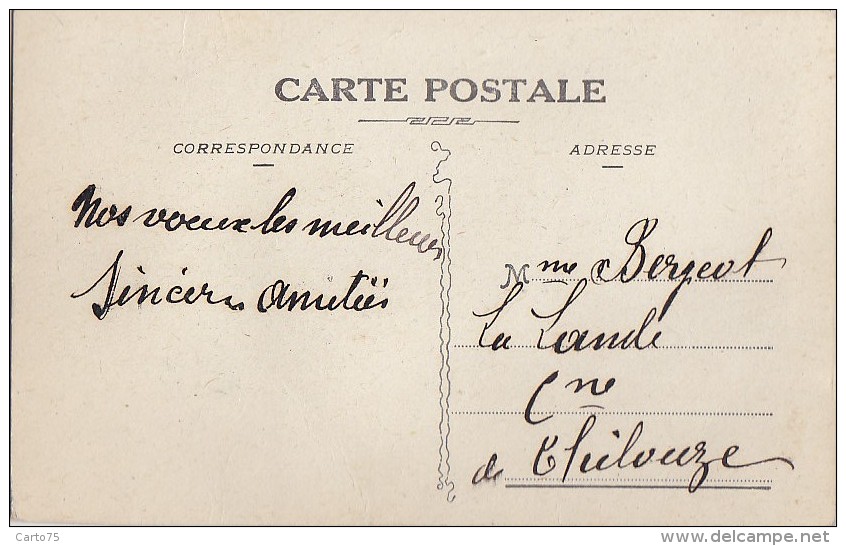 CARTE POSTALE
CORRESPONDANCE
ADRESSE
Nos voeux les meilleurs
Sincères amitiés
Mme Bergeot
La Lande
Cne
de Thilouze
Carto75
www.delcampe.net